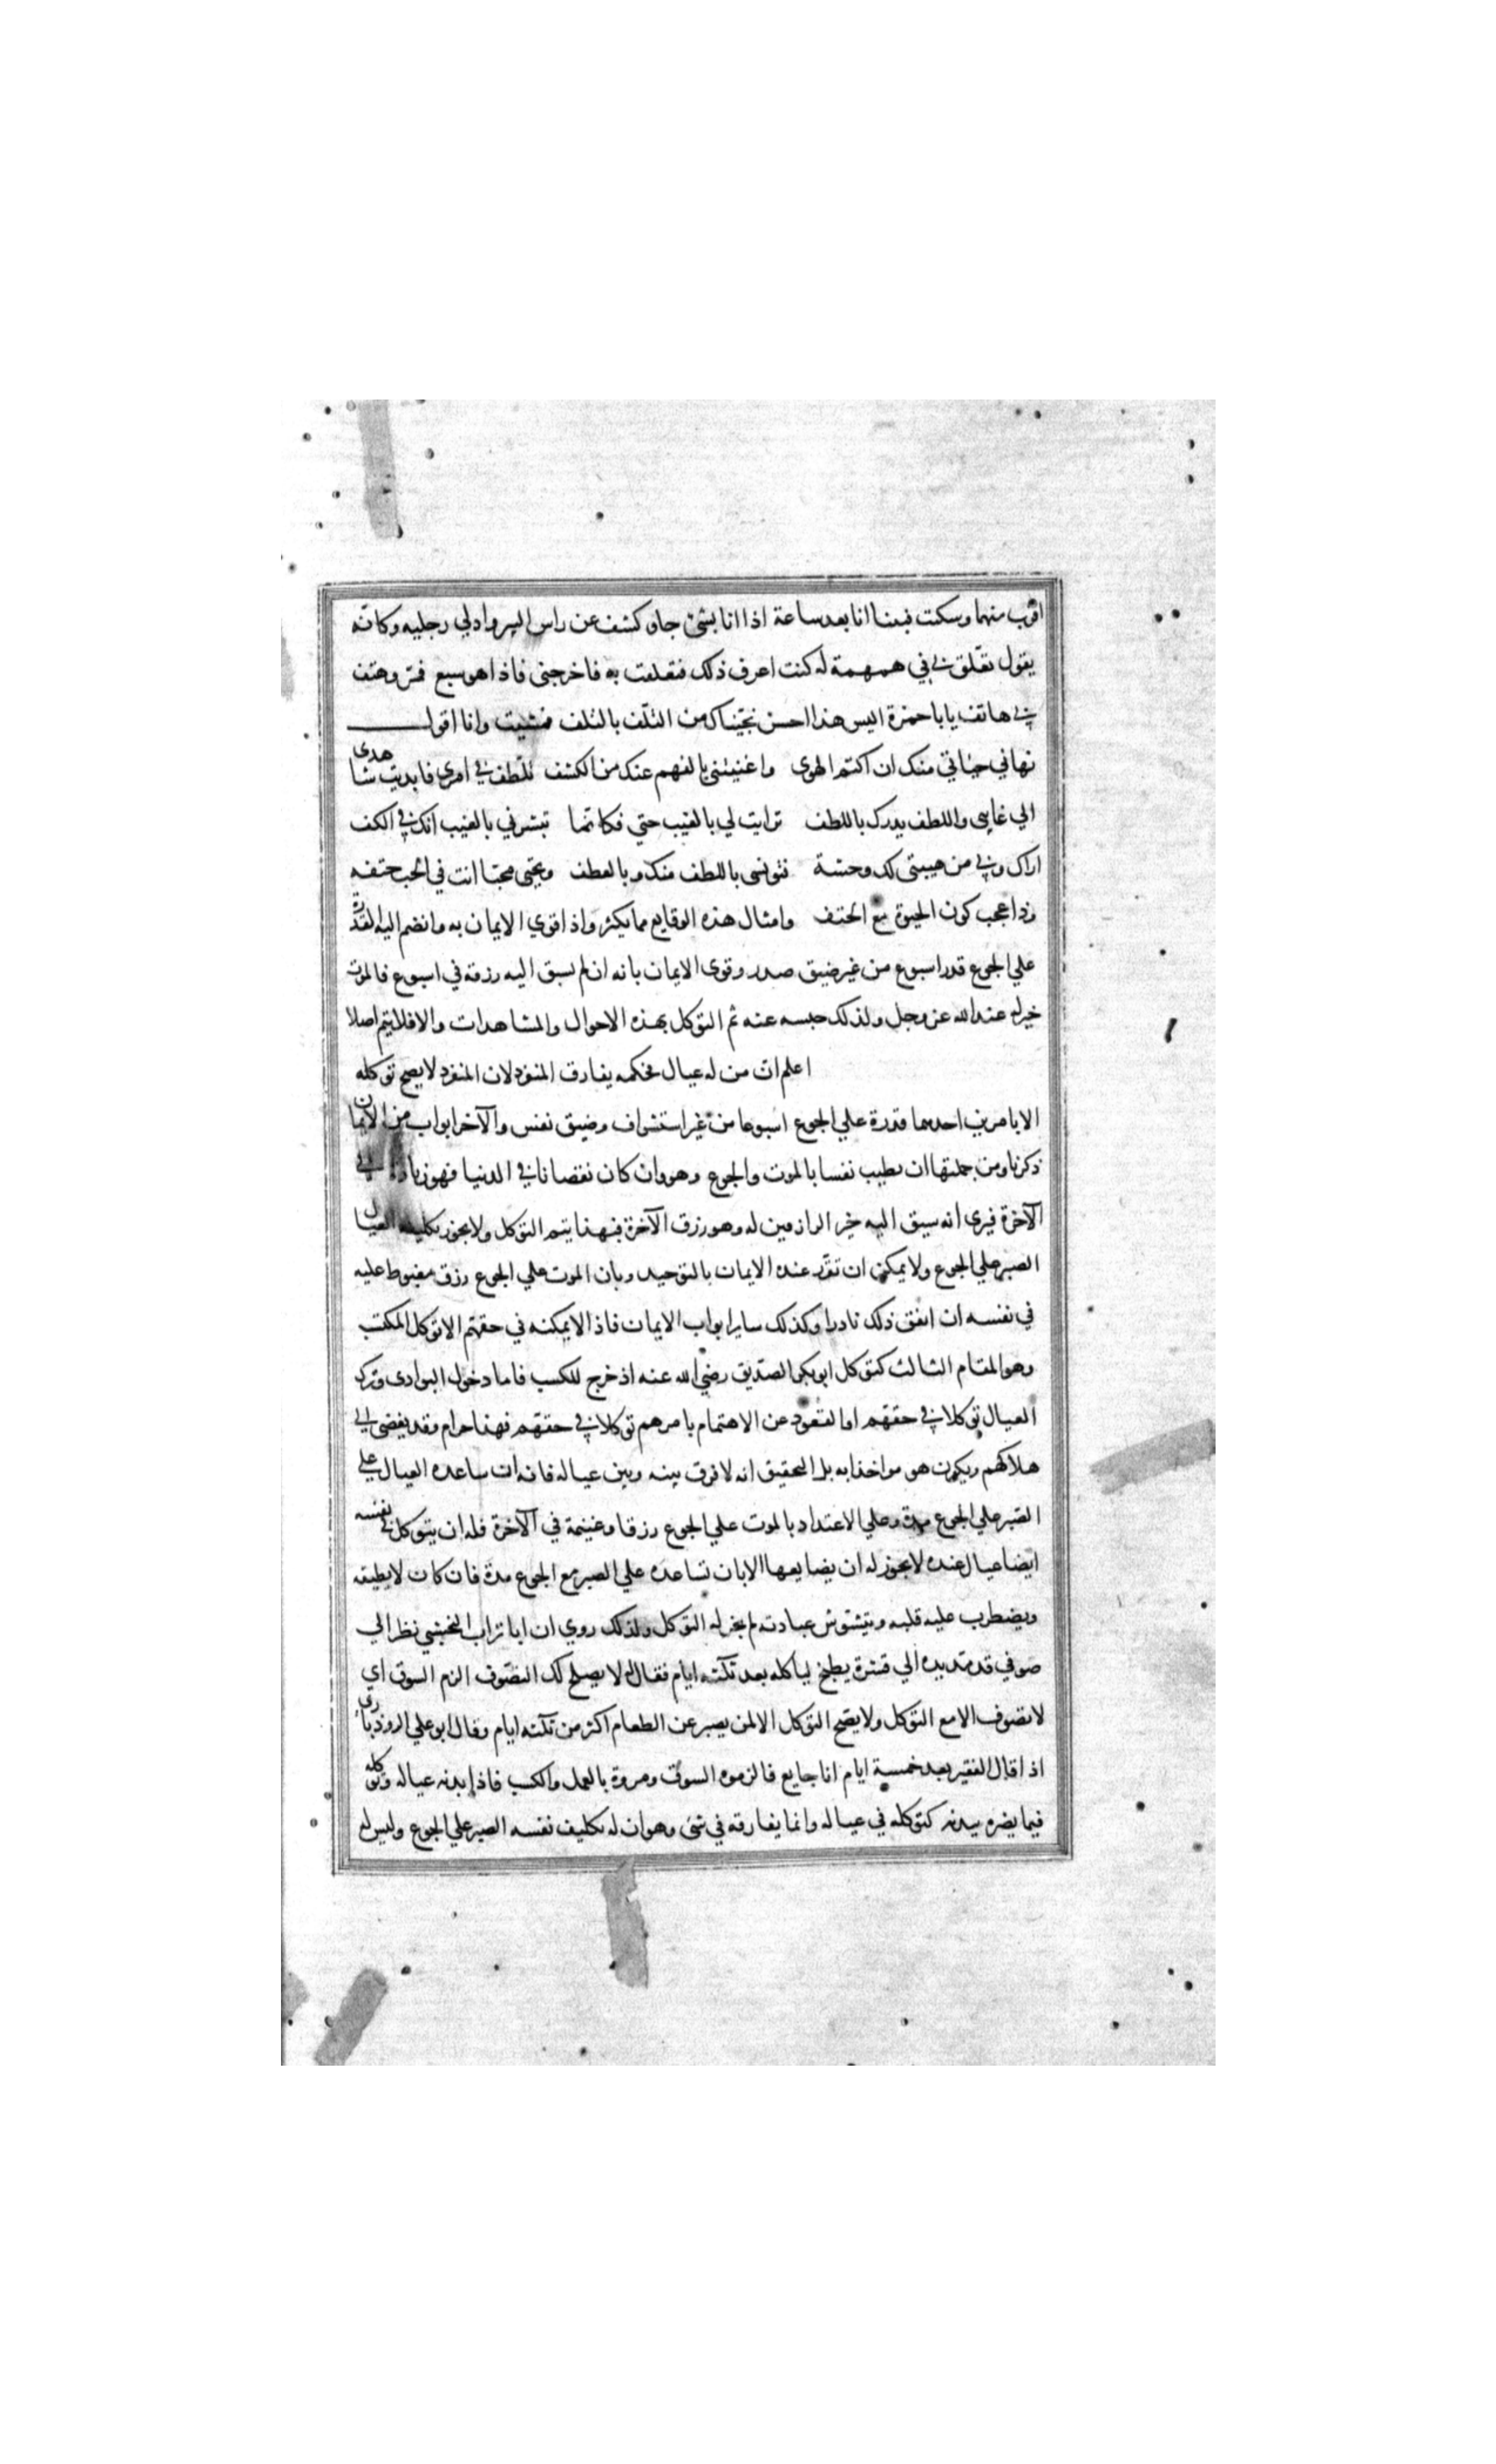 اقرب منهما وسكت فبينا انا بعد ساعة اذا انا بشئ جاء وكشف عن راس البير وادلي رجليه وكانه
يقول تعلق بي في همهمة له كنت اعرف ذلك فتعلقت به فاخرجني فاذا هو سبع فمر وهتف
بي هاتف يا با حمزة اليس هذا احسن نجيناك من التلف بالتلف فمشيت وانا اقول
نهاني حيائي منك ان اكتم الهوى واغنيتني بالفهم عنك من الكشف تلطف في امري فابديت شاهدي
الي غايبي واللطف يدرك باللطف ترايت لي بالغيب حتي فكانما تبشرني بالغيب انك في الكف
اراك وبي من هيبتي لك وحشة فتونسني باللطف منك وبالعطف وتحيي محبا انت في الحب حتفه
وذا عجب كون الحيوة مع الحتف وامثال هذه الوقايع مما يكثر واذا قوي الايمان به وانضم اليه القدرة
علي الجوع قدر اسبوع من غير ضيق صدر وقوى الايمان بانه ان لم يسبق اليه رزقه في اسبوع فالموت
خير له عند الله عز وجل ولذلك حبسه عنه ثم التوكل بهذه الاحوال والمشاهدات والا فلا يتم اصلا
اعلم ان من له عيال فحكمه يفارق المنفرد لان المنفرد لا يصح توكله
الا بامرين احدهما قدرة علي الجوع اسبوعا من غير استشراف وضيق نفس والآخر ابواب من الايمان
ذكرناها ومن جملتها ان يطيب نفسا بالموت والجوع وهو وان كان نقصانا في الدنيا فهو زيادة في
الآخرة فيرى انه سيق اليه خير الرازقين له وهو رزق الآخرة فبهذا يتم التوكل ولا يجوز تكليف العيال
الصبر علي الجوع ولا يمكن ان تقرر عنده الايمان بالتوحيد وبان الموت علي الجوع رزق مغبوط عليه
في نفسه ان اتفق ذلك نادرا وكذلك ساير ابواب الايمان فاذا لا يمكنه في حقهم الا توكل المكتسب
وهو المقام الثالث كتوكل ابو بكر الصديق رضي الله عنه اذ خرج للكسب فاما دخول البوادى وترك
العيال توكلا في حقهم او القعود عن الاهتمام بامرهم توكلا في حقهم فهذا حرام وقد يفضى الي
هلاكهم ويكون هو مواخذا به بل التحقيق انه لا فرق بينه وبين عياله فانه ان ساعده العيال علي
الصبر علي الجوع مدة وعلي الاعتداد بالموت علي الجوع رزقا وغنيمة في الآخرة فله ان يتوكل في نفسه
ايضا عيال عنده لا يجوز له ان يضايعها الا بان تساعده علي الصبر مع الجوع مدة فان كان لا يطيقه
ويضطرب عليه قلبه ويتشوش عبادته لم يجز له التوكل ولذلك روي ان ابا تراب النخشبي نظر الي
صوفي قد مد يده الي قشرة بطيخ لياكله بعد ثلثة ايام فقال له لا يصلح لك التصوف الزم السوق اي
لا تصوف الا مع التوكل ولا يصح التوكل الا لمن يصبر عن الطعام اكثر من ثلثه ايام وقال ابو علي الروذباري
اذا قال الفقير بعد خمسة ايام انا جايع فالزموه السوق ومروة بالعمل والكسب فاذا بدنه عياله وتوكله
فيما يضره ببدنه كتوكله في عياله وانما يفارقه في شئ وهو ان له تكليف نفسه الصبر علي الجوع وليس له